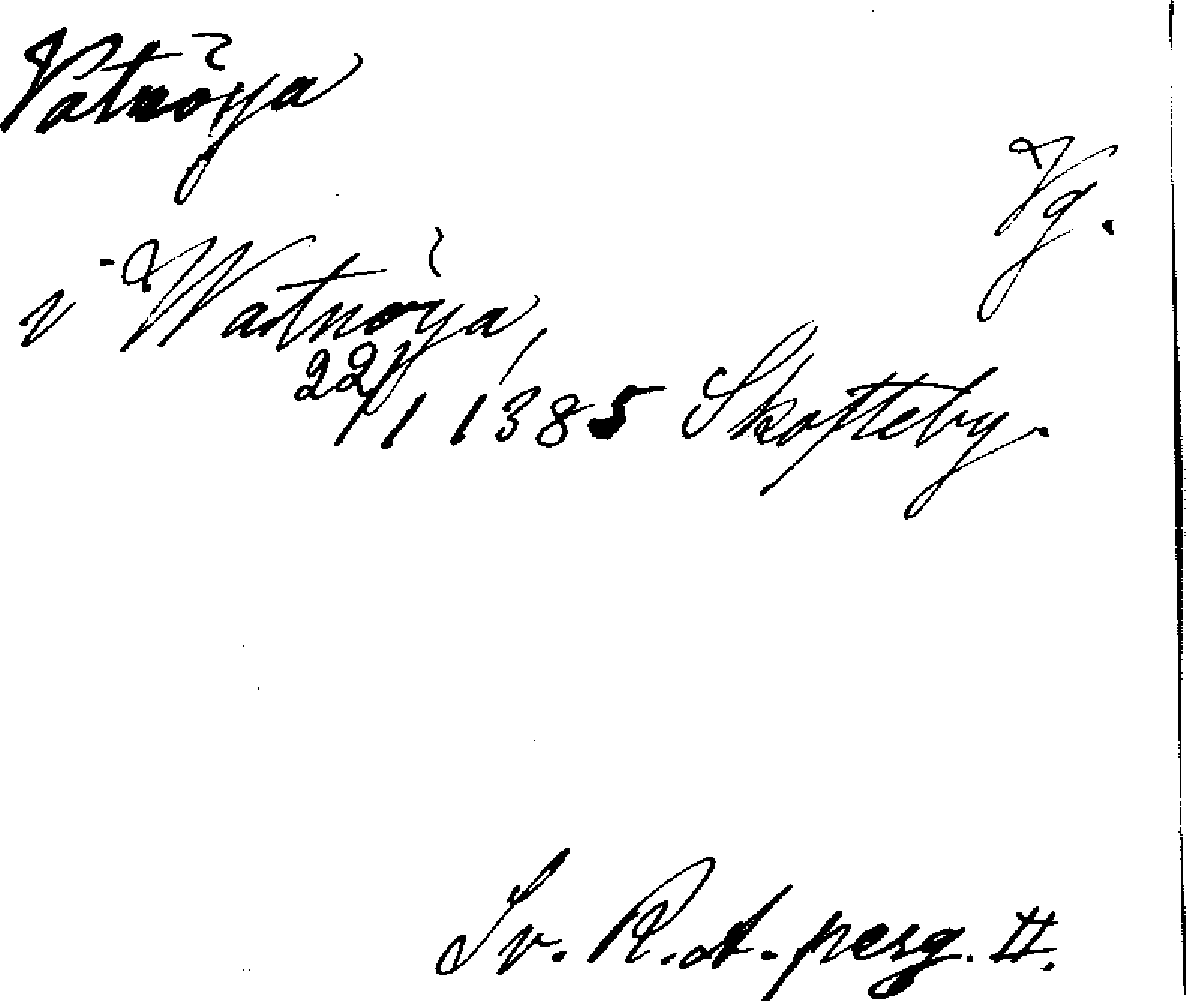 Vatnöya
Vg.
i Watnöya,
22/1 1385 Skofteby.
Sv. R. A. perg. II.